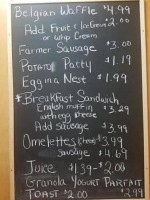 Belgian Waffle $4.99
Add Fruit + Ice Cream $2.00
or Whip Cream
Farmer Sausage $3.00
Potato Patty $1.19
Egg in a Nest $1.99
*Breakfast Sandwich
English muffin $3.29
with egg cheese
Add sausage $3.99
Omelettes (cheese) $3.99
sausage $4.69
Juice $1.39 - $2.00
Granola Yogurt Parfait
Toast $2.00 $3.99